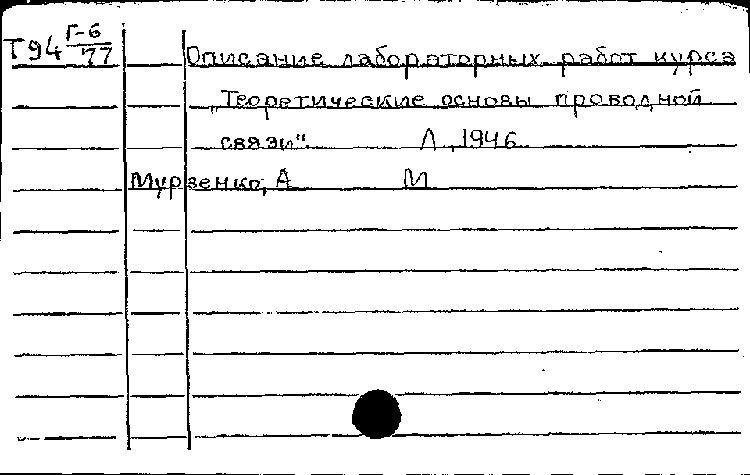 Т94 Г-6/77 Описание лабораторных работ курса
„Теоретические основы проводной
связи“. Л, 1946
Мурзенко, А М